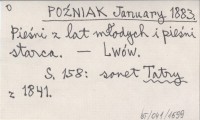 0
POŹNIAK January 1883.
Pieśni z lat młodych i pieśni
starca. — Lwów.
S. 158: sonet Tatry
z 1841.